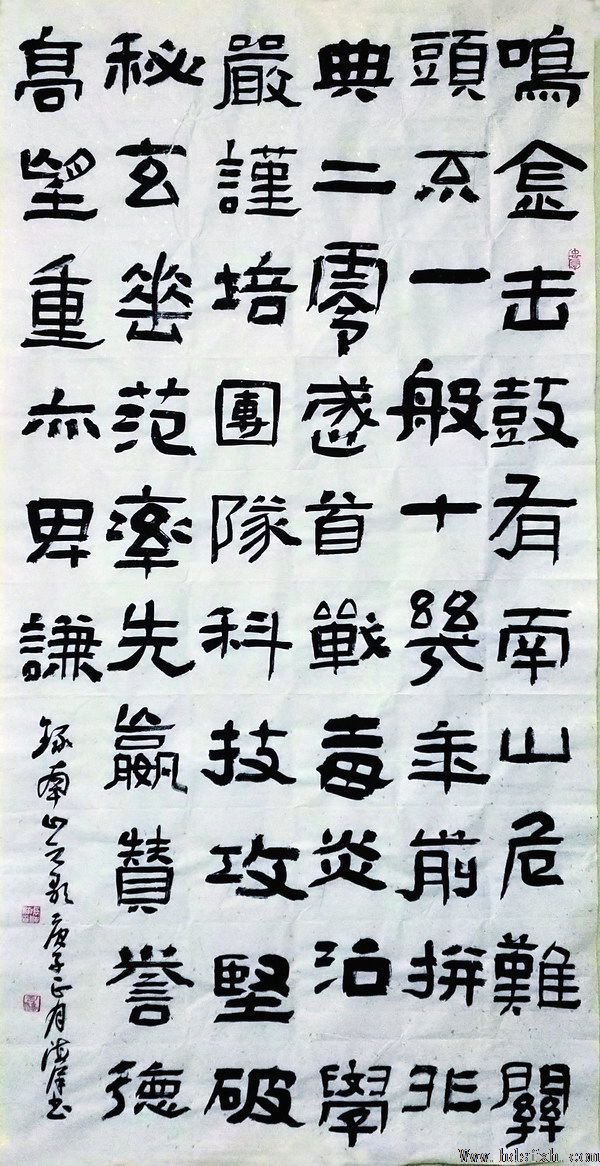 鳴金击鼓有南山危難關
頭不一般十幾年前拼非
典二零歲首戰毒炎治學
嚴謹培團隊科技攻堅破
秘玄垂范率先贏贊譽德
高望重亦卑謙
録南山之歌庚子正月书
Www.hdsfxh.com